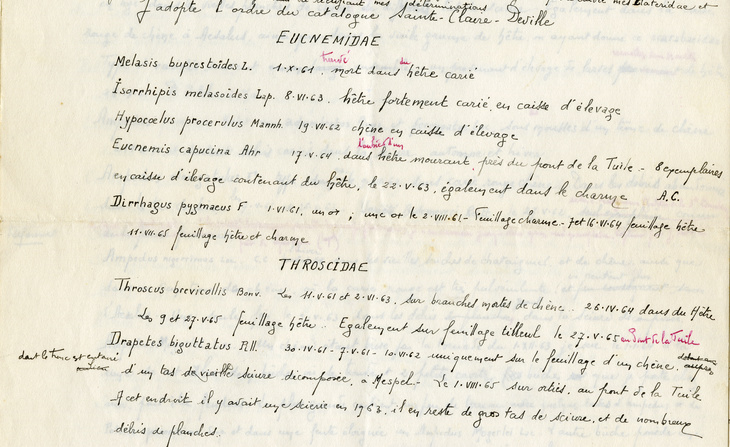 mes déterminations mes Elateridae et
J'adopte l'ordre du catalogue Sainte-Claire-Deville
EUCNEMIDAE
Melasis buprestoides L. 1.X.61. trouvé mort dans du hêtre carié
Isorrhipis melasoides Lap. 8.VI.63. hêtre fortement carié, en caisse d'élevage
Hypocoelus procerulus Mannh. 19.VII.62 chêne en caisse d'élevage
Eucnemis capucina Ahr 17.V.64, dans l'aubier d'un hêtre mourant, près du pont de la Tuile - 8 exemplaires
en caisse d'élevage contenant du hêtre, le 22.V.63, également dans le charme A.C.
Dirrhagus pygmaeus F 1.VI.61, un ♂ ; une ♂ le 2.VIII.61 - feuillage charme - 7 et 16.VI.64 feuillage hêtre
11.VII.65 feuillage hêtre et charme
THROSCIDAE
Throscus brevicollis Bonv. Les 11.V.61 et 2.VI.63, sur branches mortes de chêne. 26.IV.64 dans du Hêtre
Les 9 et 27.V.65 feuillage hêtre. Egalement sur feuillage tilleul le 27.V.65 au Pont de la Tuile
Drapetes biguttatus Pill. 30.IV.61 - 7.V.61 - 10.VI.62 uniquement sur le feuillage d'un chêne,
dont le tronc est entouré d'un tas de vieille sciure décomposée, à Mespel - Le 1.VIII.65 sur orties, au pont de la Tuile
A cet endroit il y avait une scierie en 1963, il en reste de gros tas de sciure, et de nombreux
débris de planches.